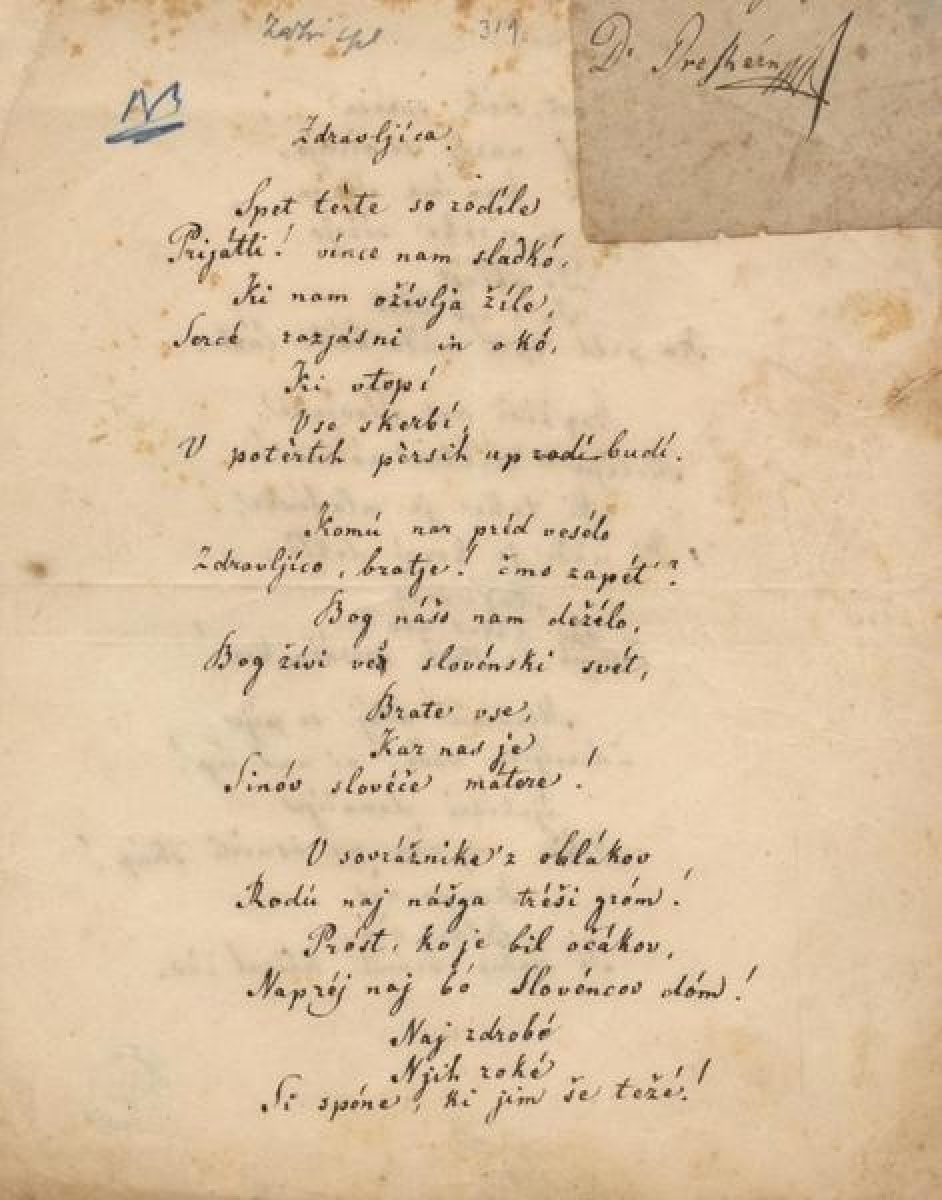 319.
Dr Preshérn
NB
Zdravljíca.
Spet tèrte so rodíle
Prijátli! vínce nam sladkó,
Ki nam ožívlja žíle,
Sercé razjásni in okó,
Ki vtopí
Vse skerbí,
V potèrtih pèrsih up rodí budí.
Komú nar préd vesélo
Zdravljíco, bratje! čmo zapét'?
Bog náša nam dežélo,
Bog žívi ves slovénski svét,
Brate vse,
Kar nas je
Sinóv slovéče mátere!
V sovrážnike 'z oblákov
Rodú naj nášga tréši gróm!
Próst, ko je bil očákov,
Napréj naj bó Slovéncov dóm!
Naj zdrobé
Njih roké
Si spóne, ki jim še težé!